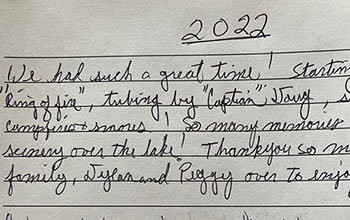 2022
We had such a great time! Startin
"Ring of fire", tubing by "Captain" Doug, s
campfires & smores! So many memories
scenery over the lake! Thankyou so m
family, Dylan and Peggy over to enjo